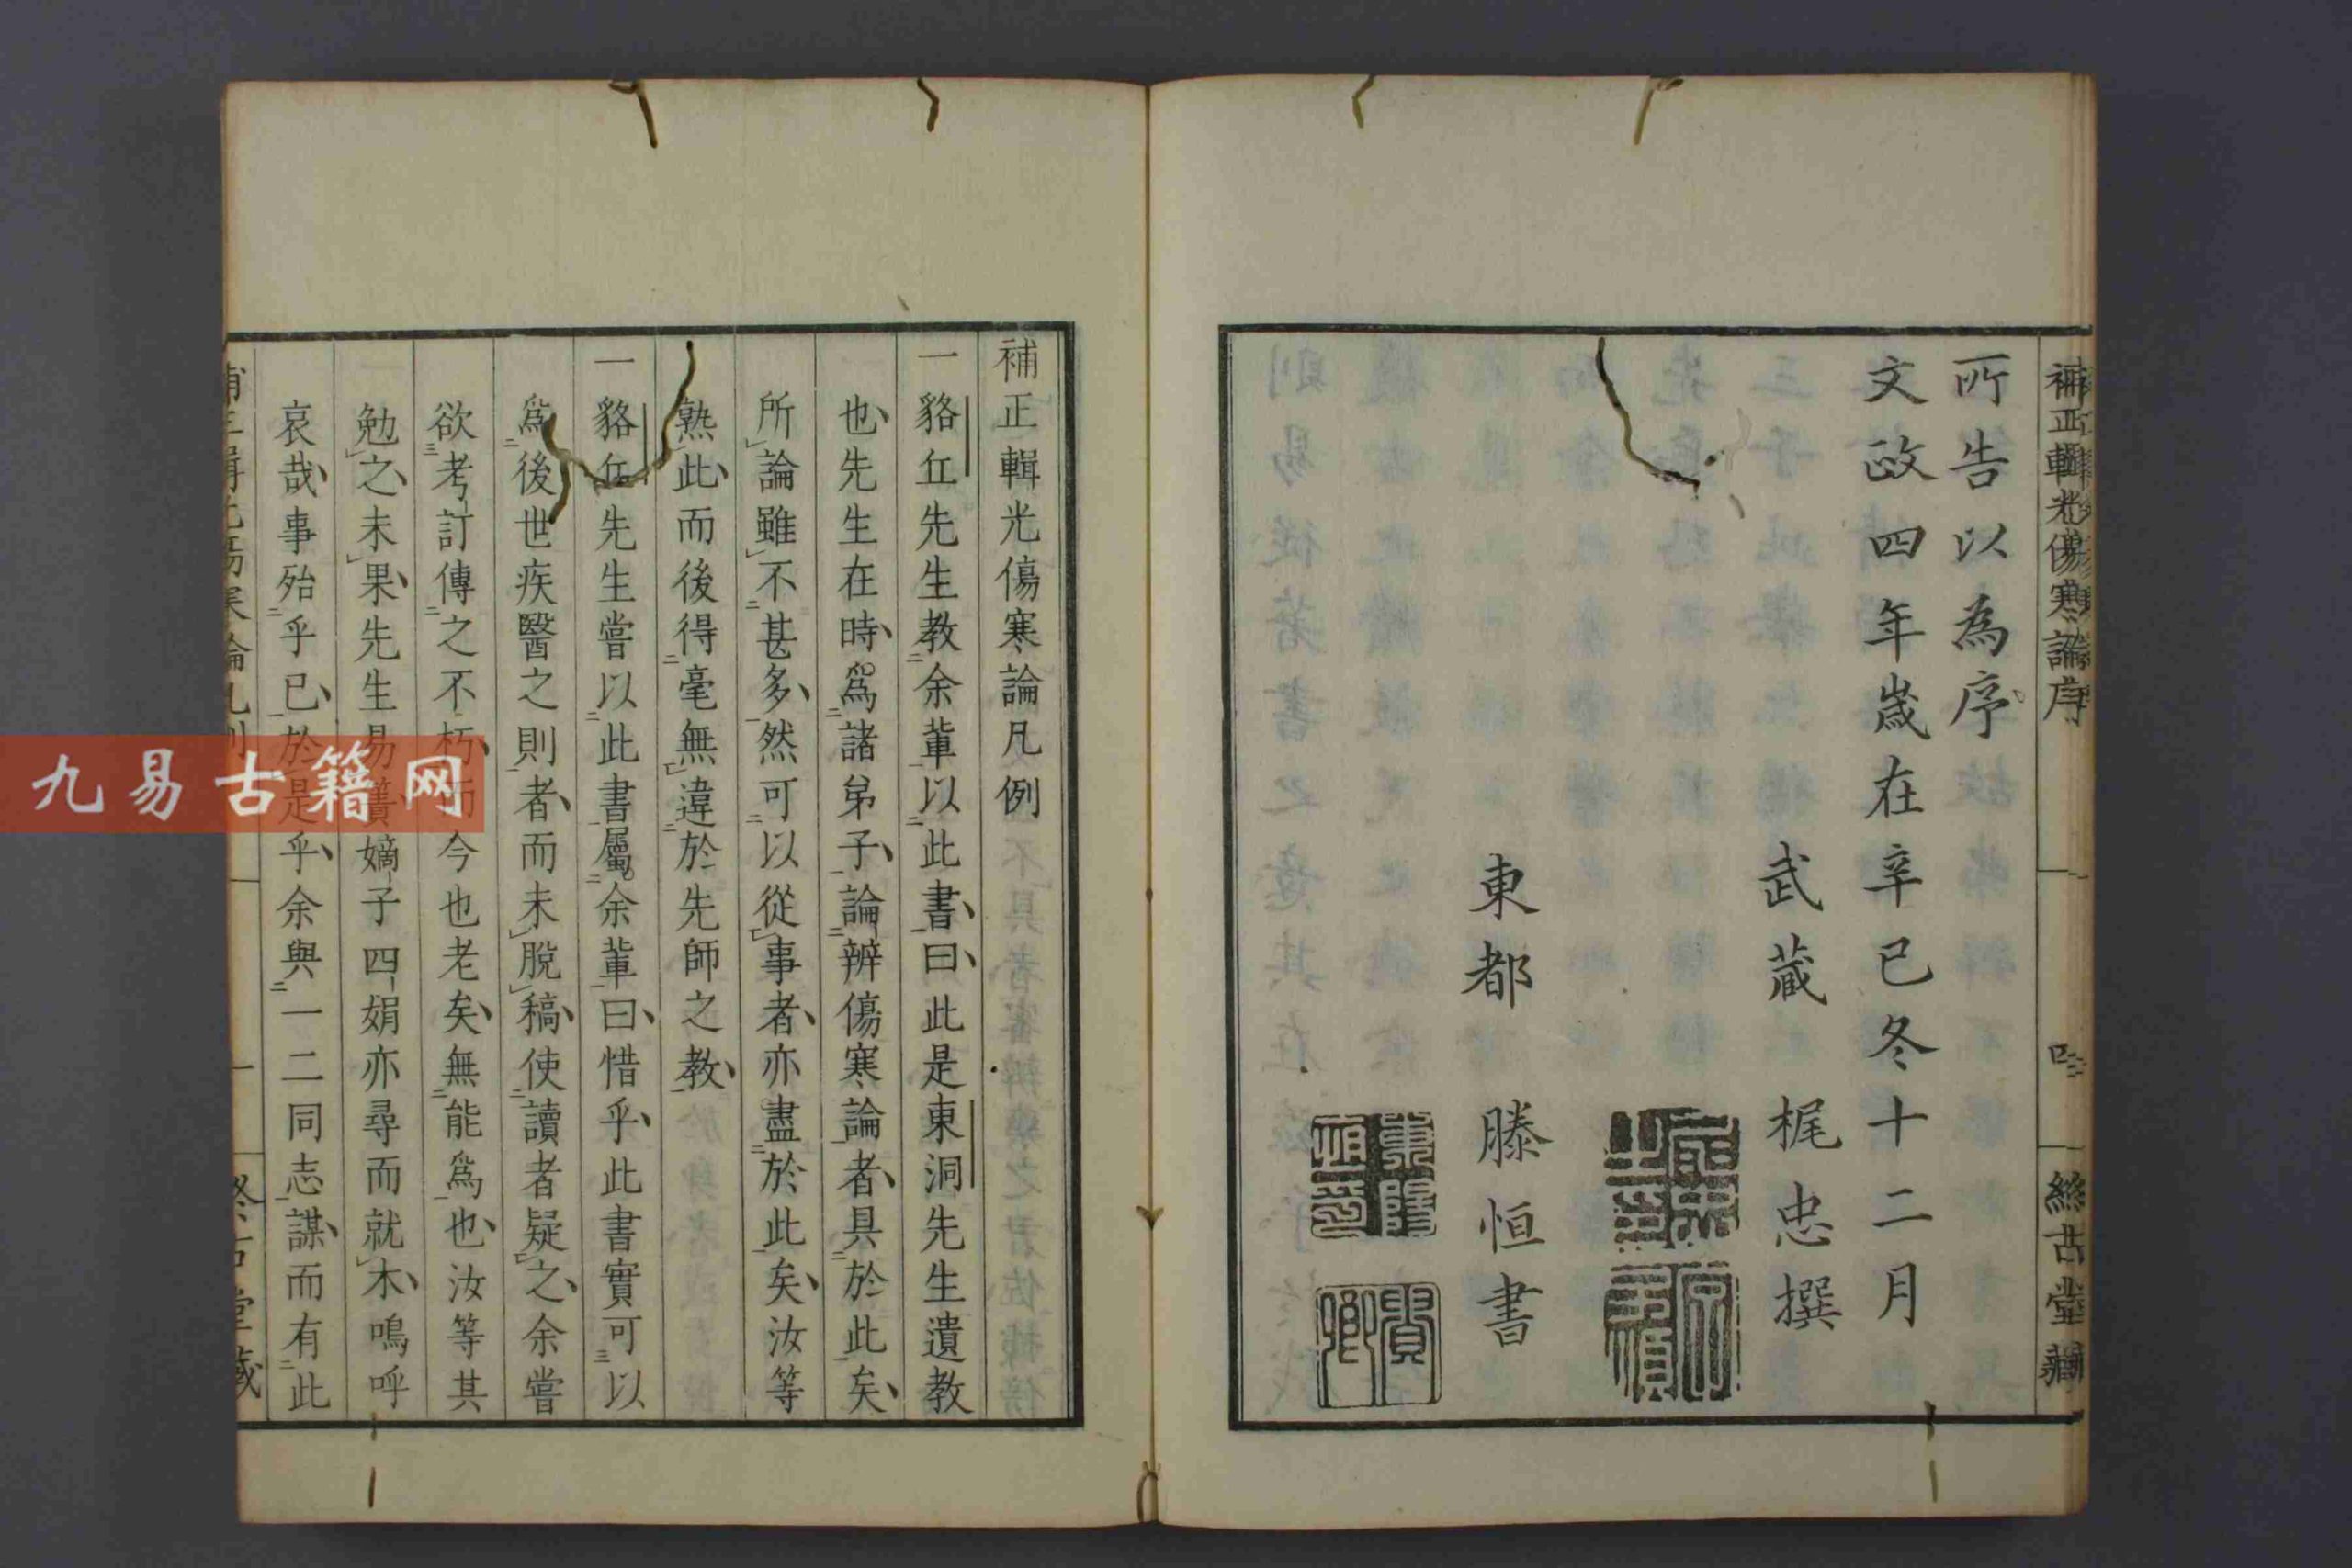 補正輯光傷寒論序
四
絲古堂藏
所告以為序
文政四年嵗在辛巳冬十二月
武蔵 梶忠撰
東都 滕恒書
補正輯光傷寒論凡例
一貉丘先生教余輩以此書曰此是東洞先生遺教
也先生在時爲諸弟子論辨傷寒論者具於此矣
所論雖不甚多然可以從事者亦盡於此矣汝等
熟此而後得毫無違於先師之教
一貉丘先生嘗以此書屬余輩曰惜乎此書實可以
爲後世疾醫之則者而未脫稿使讀者疑之余嘗
欲考訂傳之不朽而今也老矣無能爲也汝等其
勉之未果先生易簀嫡子四娟亦尋而就木嗚呼
哀哉事殆乎已於是乎余與一二同志謀而有此
九易古籍网